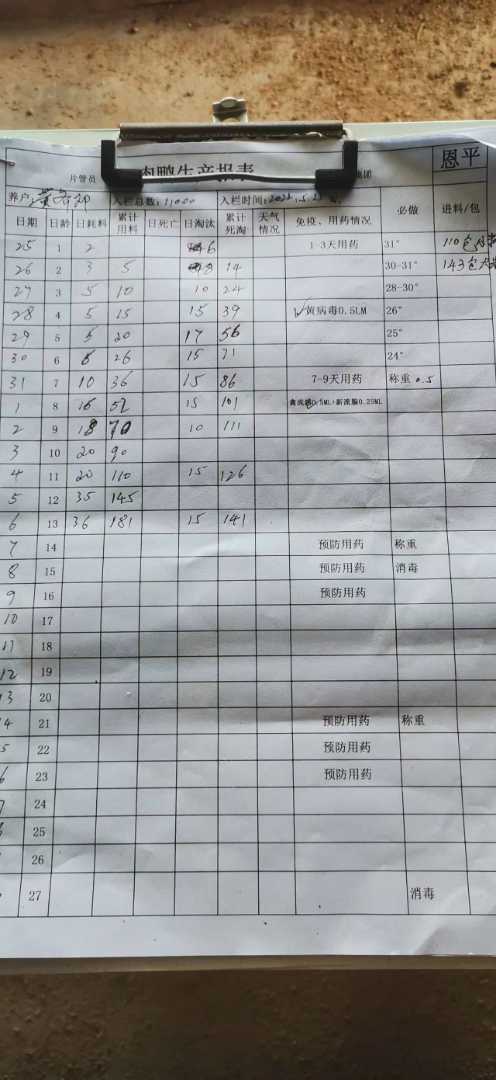 恩平
片管员 肉鸭生产报表 集团
养户: 入栏总数: 11000 入栏时间: 2022.5.25
日期 日龄 日耗料 累计用料 日死亡 日淘汰 累计死淘 天气情况 免疫、用药情况 必做 进料/包
25 1 2 6 1-3天用药 31° 110包
26 2 3 5 8 14 30-31° 143包
27 3 5 10 10 24 28-30°
28 4 5 15 15 39 √黄病毒0.5LM 26°
29 5 5 20 17 56 25°
30 6 6 26 15 71 24°
31 7 10 36 15 86 7-9天用药 称重 0.5
1 8 16 52 15 101 0.5ML+新流腺0.25ML
2 9 18 70 10 111
3 10 20 90
4 11 20 110 15 126
5 12 35 145
6 13 36 181 15 141
7 14 预防用药 称重
8 15 预防用药 消毒
9 16 预防用药
10 17
11 18
12 19
13 20
4 21 预防用药 称重
5 22 预防用药
6 23 预防用药
7 24
25
26
27 消毒